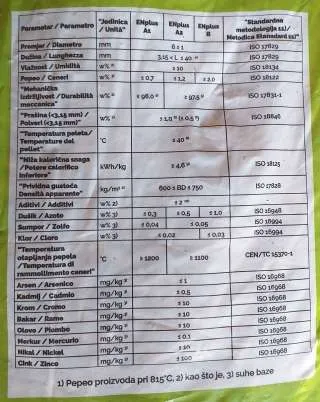 Parametar / Parametro "Jedinica / Unità" ENplus A1 ENplus A2 ENplus B "Standardna metodologija 11)/ Metodica Standard 11)"
Promjer / Diametro mm 6 ± 1 ISO 17829
Dužina / Lunghezza mm 3,15 < L ≤ 40 ISO 17829
Vlažnost / Umidità w% ≤ 10 ISO 18134
Pepeo / Ceneri w% ≤ 0,7 ≤ 1,2 ≤ 2,0 ISO 18122
"Mehanička izdržljivost /Durabilità meccanica" w% ≥ 98,0 ≥ 97,5 ISO 17831-1
"Prašina (<3,15 mm) / Polveri (<3,15 mm)" w% ≤ 1,0 (≤ 0,5) ISO 18846
"Temperatura peleta/ Temperature del pellet" °C ≤ 40
"Niža kalorična snaga / Potere calorifico inferiore" kWh/kg ≥ 4,6 ISO 18125
"Prividna gustoća Densità apparente" kg/m³ 600 ≤ BD ≤ 750 ISO 17828
Aditivi / Additivi w% 2) ≤ 2
Dušik / Azoto w% 3) ≤ 0,3 ≤ 0,5 ≤ 1,0 ISO 16948
Sumpor / Zolfo w% 3) ≤ 0,04 ≤ 0,05 ISO 16994
Klor / Cloro w% 3) ≤ 0,02 ≤ 0,03 ISO 16994
"Temperatura otapljanja pepela /Temperatura di rammollimento ceneri" °C ≥ 1200 ≥ 1100 CEN/TC 15370-1
Arsen / Arsenico mg/kg ≤ 1 ISO 16968
Kadmij / Cadmio mg/kg ≤ 0,5 ISO 16968
Krom / Cromo mg/kg ≤ 10 ISO 16968
Bakar / Rame mg/kg ≤ 10 ISO 16968
Olovo / Piombo mg/kg ≤ 10 ISO 16968
Merkur / Mercurio mg/kg ≤ 0,1 ISO 16968
Nikal / Nickel mg/kg ≤ 10 ISO 16968
Cink / Zinco mg/kg ≤ 100 ISO 16968
1) Pepeo proizvoda pri 815°C, 2) kao što je, 3) suhe baze